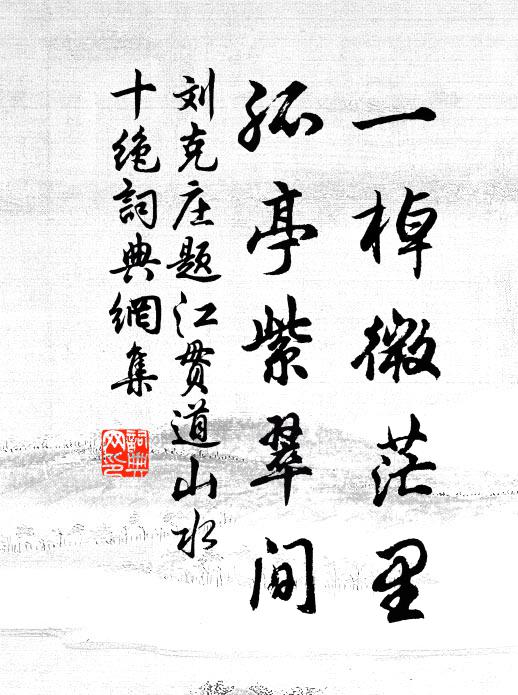 一棹微茫里
孤亭紫翠间
刘克庄题江贯道山水
十绝词典網集
詞典
网印